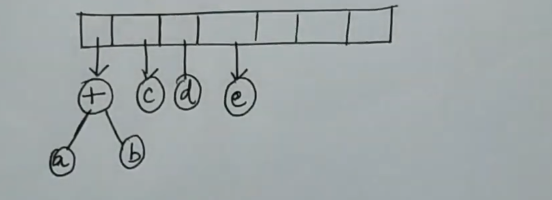 + c d e
a b